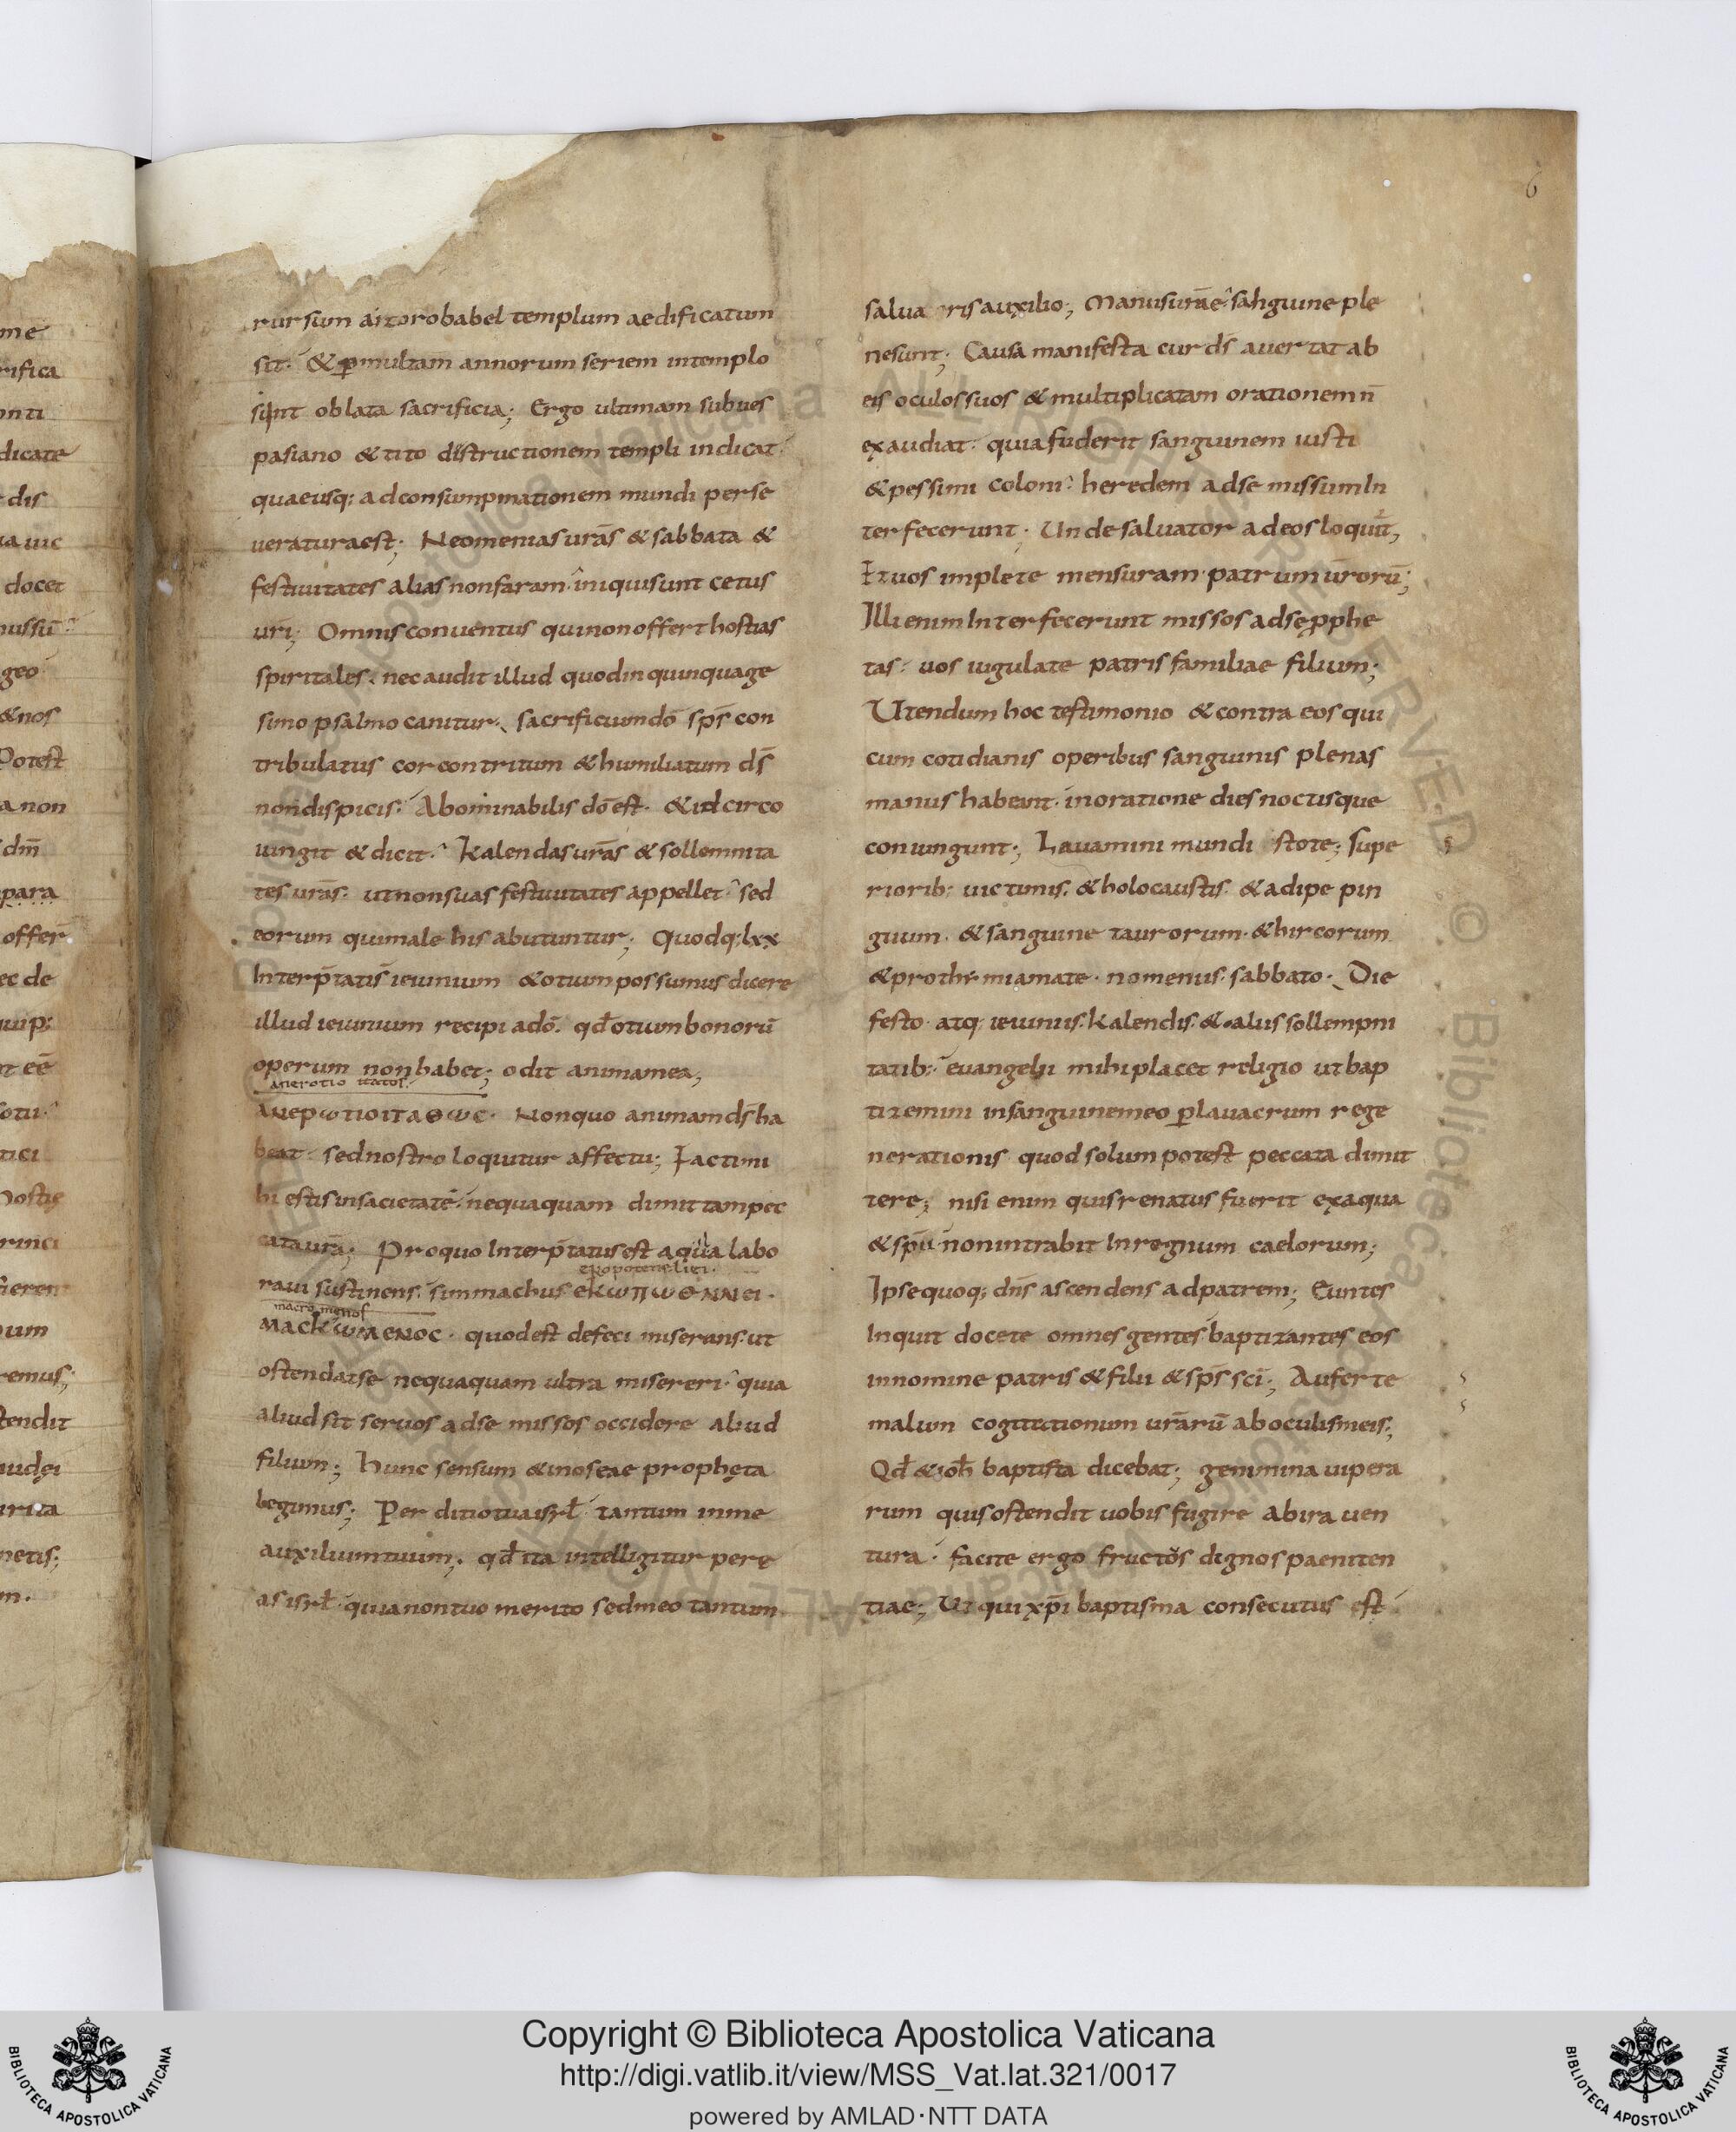 rursum a zorobabel templum aedificatum
sit· & ꝑ multam annorum seriem in templo
sint oblata sacrificia; Ergo ultimam sub ues
pasiano & tito destructionem templi indicat·
quae usq; ad consumpmationem mundi perse
ueratura est; Neomenias urās & sabbata &
festiuitates alias non feram· iniqui sunt cetus
uri; Omnis conuentus qui non offert hostias
spiritales· nec audit illud quod in quinquage
simo psalmo canitur· sacrificium dō sps̄ con
tribulatus cor contritum & humiliatum ds̄
non dispicis· Abominabilis dō est· & idcirco
iungit & dicit· Kalendas urās & sollemnita
tes urās· ut non suas festiuitates appellet· sed
eorum qui male his abutuntur; Quodq; lxx
Interp̄tatis ieiunium & otium possumus dicere
illud ieiunium recipi a dō· qđ otium bonorū
operum non habet; odit anima mea;
anerotio itatos·
ANEPωTIOITAΘωC· Non quo animam ds̄ ha
beat· sed nostro loquitur affectu; Facti mi
hi estis in sacietatē· nequaquam dimittam pec
cata urā; Pro quo Interp̄tatus est aquila labo
epopotene liei·
raui sustinens· simmachus EKωΠωΘNNEI·
macro menos
MACKωMENOC· quod est defeci miserans· ut
ostendat se nequaquam ultra misereri· quia
aliud sit seruos ad se missos occidere aliud
filium; Hunc sensum & in oseae prophęta
legimus; Perditio tua isrł tantum in me
auxilium tuum; qđ ita intelligitur perę
as isrł· quia non tuo merito sed meo tantum
salua ris auxilio; Manus uirae sanguine ple
ne sunt; Causa manifesta cur ds̄ auertat ab
eis oculos suos & multiplicatam orationem n̄
exaudiat· quia fuderit sanguinem iusti
& pessimi coloni· heredem ad se missum In
terfecerunt; Unde saluator ad eos loquit̄,
Et uos implete mensuram patrum ūrorū;
Illi enim Interfecerunt missos ad se ꝓphe
tas· uos iugulate patris familiae filium;
Utendum hoc testimonio & contra eos qui
cum cotidianis operibus sanguinis plenas
manus habeant· in oratione dies noctisque
coniungunt; Lauamini mundi stote; supe
riorib; uictimis· & holocaustis· & adipe pin
guium· & sanguine taurorum· & hircorum
& prothimiamate· nomeniis· sabbato· Die
festo· atq; ieiuniis· kalendis· & aliis sollempni
tatib; euangelii mihi placet religio ut bap
tizemini in sanguine meo ꝑ lauacrum rege
nerationis quod solum potest peccata dimit
tere; nisi enim quis renatus fuerit ex aqua
& spū non intrabit In regnum caelorum;
Ipse quoq; dn̄s ascendens ad patrem; Euntes
Inquit docete omnes gentes baptizantes eos
in nomine patris & filii & sps̄ sc̄i; Auferte
malum cogitationum urārū ab oculis meis;
Qđ & ioh baptista dicebat; genimina uipera
rum quis ostendit uobis fugire ab ira uen
tura· facite ergo fructos dignos paeniten
tiae; Ut qui xp̄i baptisma consecutus est
6
me
rifica
onti
dicate
dis
docet
geo
& nos
Potest
a non
dm̄
para
offer
ec de
uip;
tici
rinci
um
remus;
tendit
iudęi
Copyright © Biblioteca Apostolica Vaticana
http://digi.vatlib.it/view/MSS_Vat.lat.321/0017
powered by AMLAD·NTT DATA
BIBLIOTECA APOSTOLICA VATICANA
BIBLIOTECA APOSTOLICA VATICANA